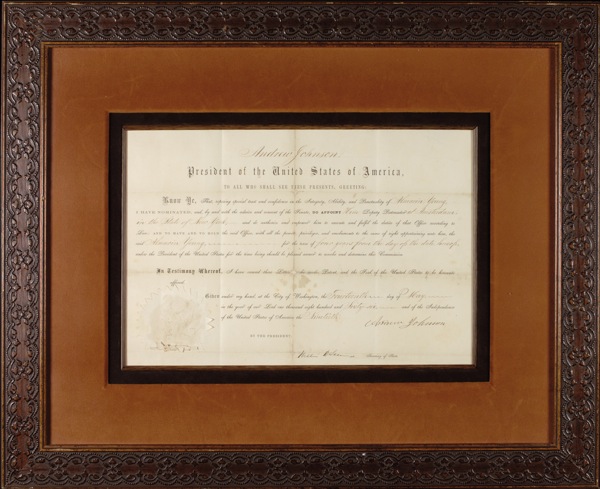 Andrew Johnson,
President of the United States of America,
TO ALL WHO SHALL SEE THESE PRESENTS, GREETING:
Know Ye, That, reposing special trust and confidence in the Integrity, Ability, and Punctuality of
I HAVE NOMINATED, and, by and with the advice and consent of the Senate, DO APPOINT Deputy Postmaster at Amsterdam
in the State of New York and do authorize and empower him to execute and fulfil the duties of that Office according to
Law; AND TO HAVE AND TO HOLD the said Office, with all the powers, privileges, and emoluments to the same of right appertaining unto him, the
said for the term of four years from the day of the date hereof,
unless the President of the United States for the time being should be pleased sooner to revoke and determine this Commission.
In Testimony Whereof, I have caused these Letters to be made Patent, and the Seal of the United States to be hereunto
affixed.
Given under my hand, at the City of Washington, the day of May
in the year of our Lord one thousand eight hundred and Sixty six and of the Independence
of the United States of America the Ninetieth
Andrew Johnson
BY THE PRESIDENT:
Secretary of State.